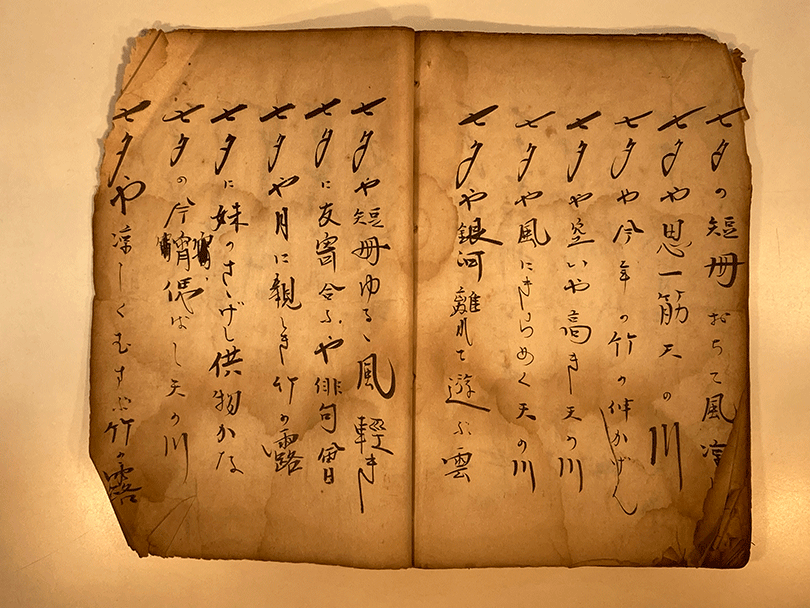 七夕の短冊おちて風涼し
七夕や思一筋天の川
七夕や今年の竹の伸かげん
七夕や空いや高き天の川
七夕や風にきらめく天の川
七夕や銀河離れて遊ぶ雲
七夕や短冊ゆるゝ風軽き
七夕に友寄合ふや俳句
七夕や月に親しき竹の露
七夕に妹のさゝげし供物かな
七夕の今宵ばし天の川
七夕や涼しくむすぶ竹の露